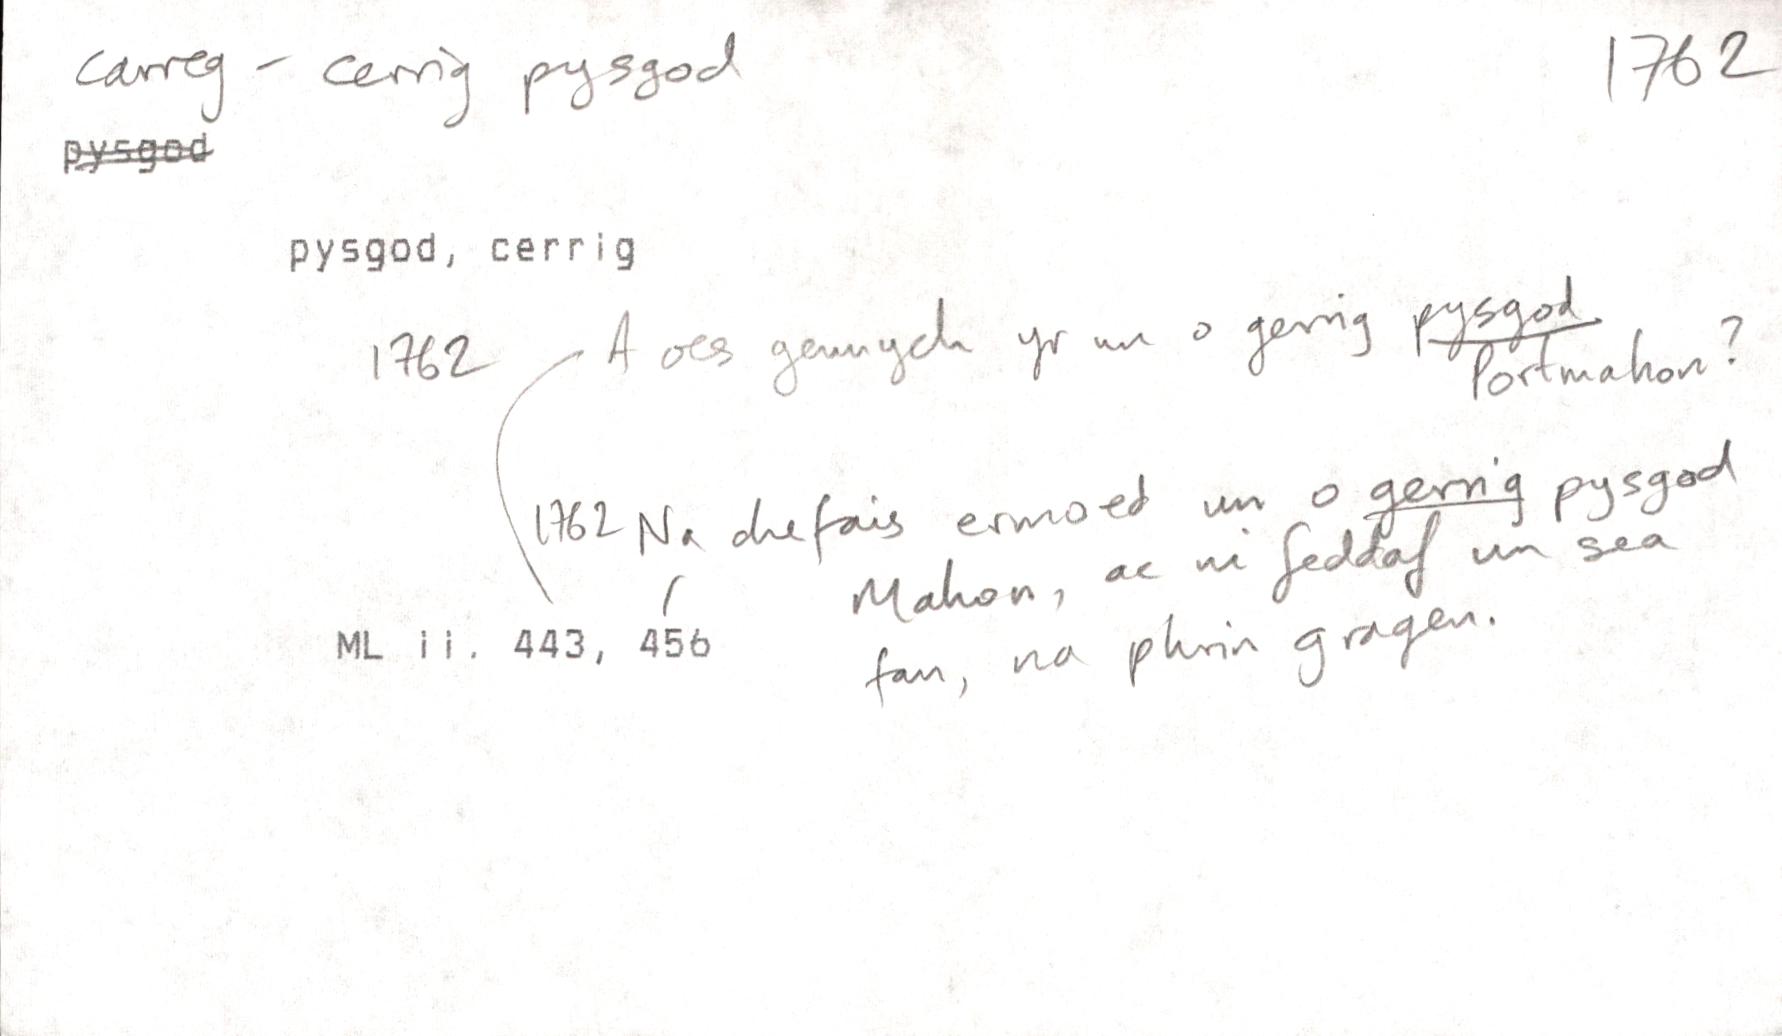 carreg - cerrig pysgod 1762
pysgod
pysgod, cerrig
1762 A oes gennych yr un o gerrig pysgod
Portmahon?
1762 Na chefais ermoed un o gerrig pysgod
Mahon, ac ni feddaf un sea
fan, na phrin gragen.
ML ii. 443, 456